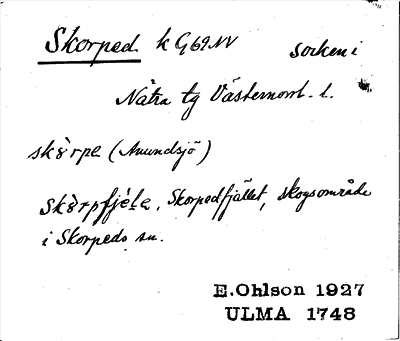 Skorped. k G69NV socken i
Nätra tg Västernorrl. l.
skòrpe (Anundsjö)
skòrpfjéle, Skorpedfjället, skogsområde
i Skorpeds sn.
E.Ohlson 1927
ULMA 1748